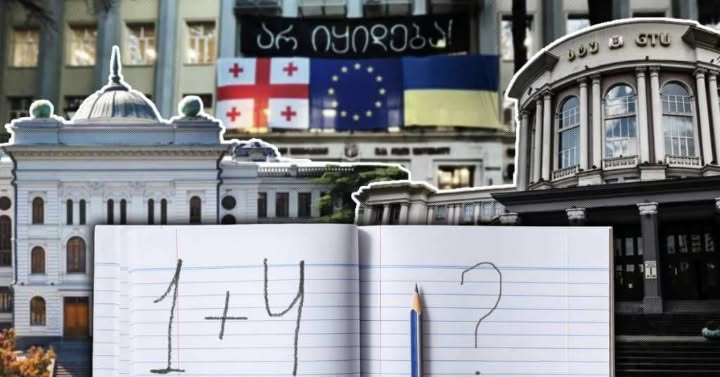 არ იყიდება!
სტუ GTU
1+4
?